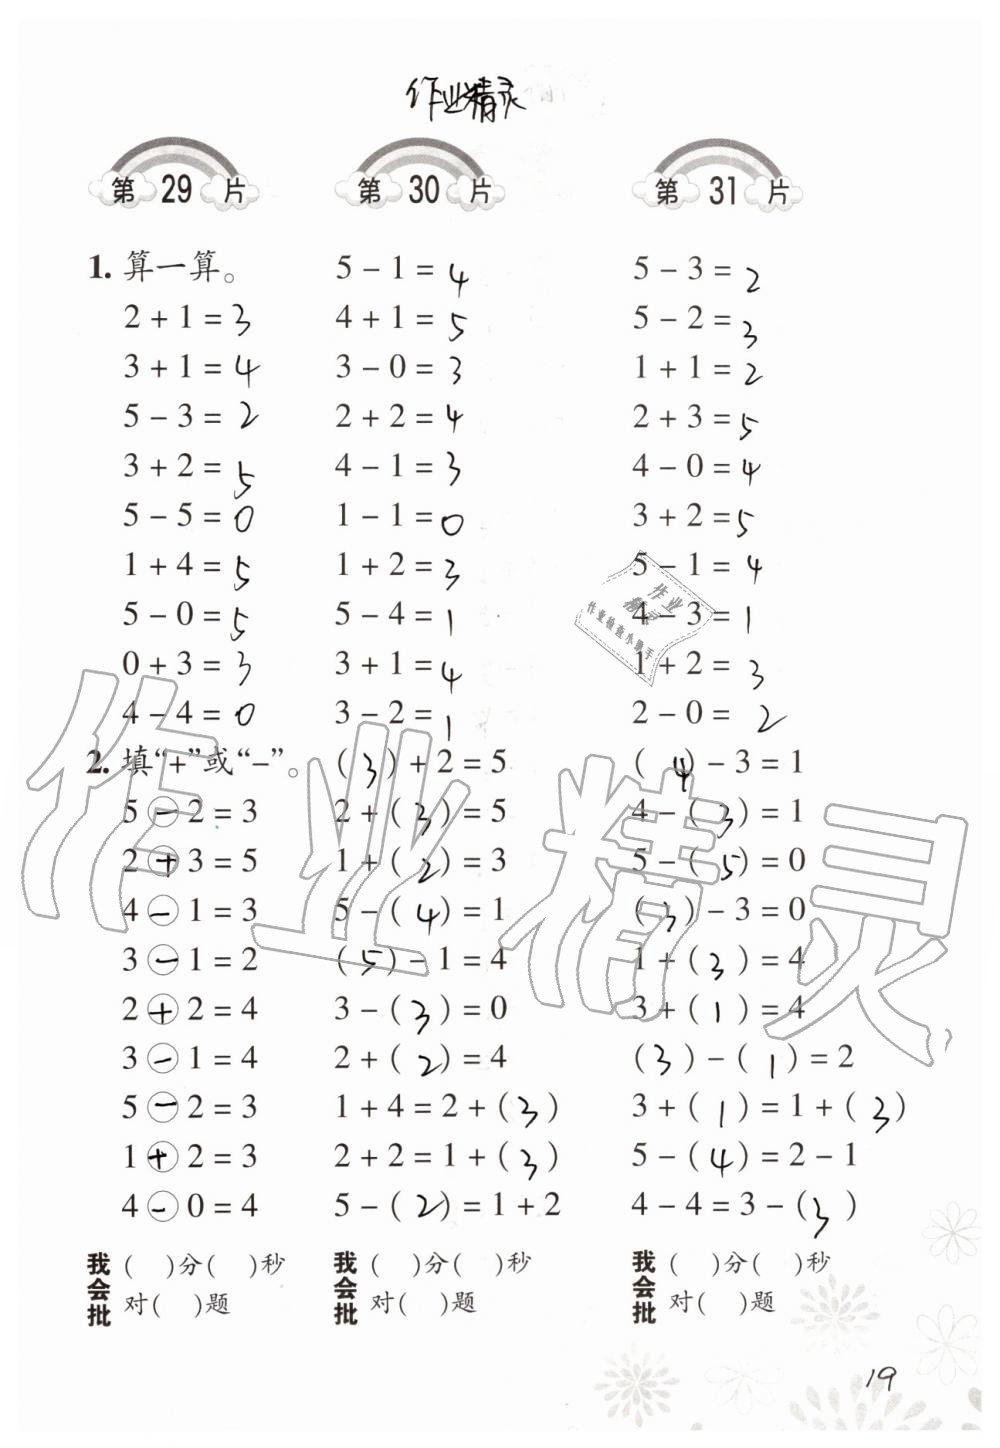 作业精灵
第 29 片
1. 算一算。
2 + 1 = 3
3 + 1 = 4
5 - 3 = 2
3 + 2 = 5
5 - 5 = 0
1 + 4 = 5
5 - 0 = 5
0 + 3 = 3
4 - 4 = 0
2. 填“+”或“-”。
5 - 2 = 3
2 + 3 = 5
4 - 1 = 3
3 - 1 = 2
2 + 2 = 4
3 - 1 = 4
5 - 2 = 3
1 + 2 = 3
4 - 0 = 4
我会批
( )分( )秒
对( )题
第 30 片
5 - 1 = 4
4 + 1 = 5
3 - 0 = 3
2 + 2 = 4
4 - 1 = 3
1 - 1 = 0
1 + 2 = 3
5 - 4 = 1
3 + 1 = 4
3 - 2 = 1
( 3 ) + 2 = 5
2 + ( 3 ) = 5
1 + ( 2 ) = 3
5 - ( 4 ) = 1
( 5 ) - 1 = 4
3 - ( 3 ) = 0
2 + ( 2 ) = 4
1 + 4 = 2 + ( 3 )
2 + 2 = 1 + ( 3 )
5 - ( 2 ) = 1 + 2
我会批
( )分( )秒
对( )题
第 31 片
5 - 3 = 2
5 - 2 = 3
1 + 1 = 2
2 + 3 = 5
4 - 0 = 4
3 + 2 = 5
5 - 1 = 4
4 - 3 = 1
1 + 2 = 3
2 - 0 = 2
( 4 ) - 3 = 1
4 - ( 3 ) = 1
5 - ( 5 ) = 0
( 3 ) - 3 = 0
1 + ( 3 ) = 4
3 + ( 1 ) = 4
( 3 ) - ( 1 ) = 2
3 + ( 1 ) = 1 + ( 3 )
5 - ( 4 ) = 2 - 1
4 - 4 = 3 - ( 3 )
我会批
( )分( )秒
对( )题
作业
精灵
作业检查小助手
作业精灵
19